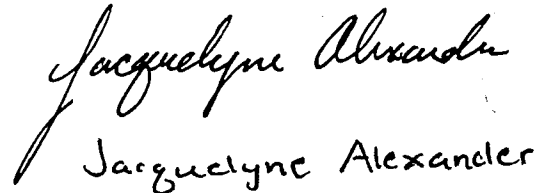 Jacquelyne Alexander
Jacquelyne Alexander